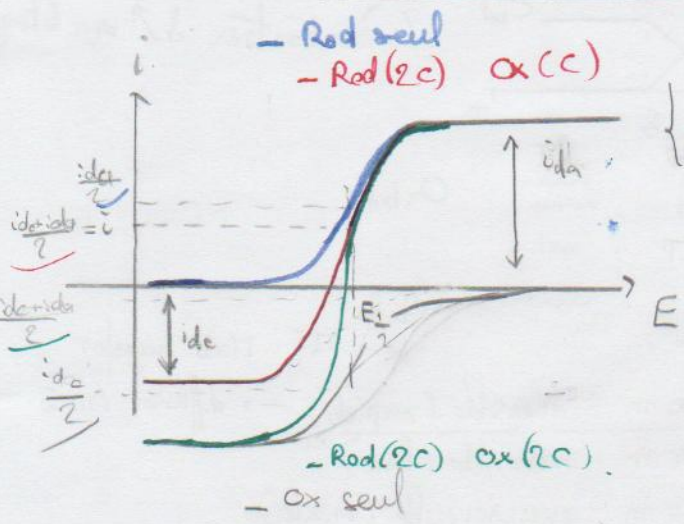 i
- Red seul
- Red(2C) Ox(C)
ida/2
idc+ida/2 = i
idc+ida/2
idc/2
ida
idc
E1/2
E
- Red(2C) Ox(2C).
- Ox seul